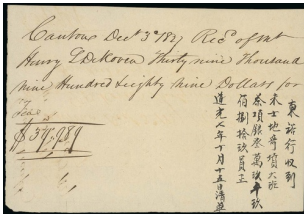 Canton Decr 3d 1827 Recd of Mr
Henry DeKoven Thirty nine Thousand
nine Hundred eighty nine Dollars for
Teas
$39,989
東裕行收到
米士地奇頃大班
茶項銀叁萬玖千玖
佰捌拾玖員正
道光 年十月十五日清單